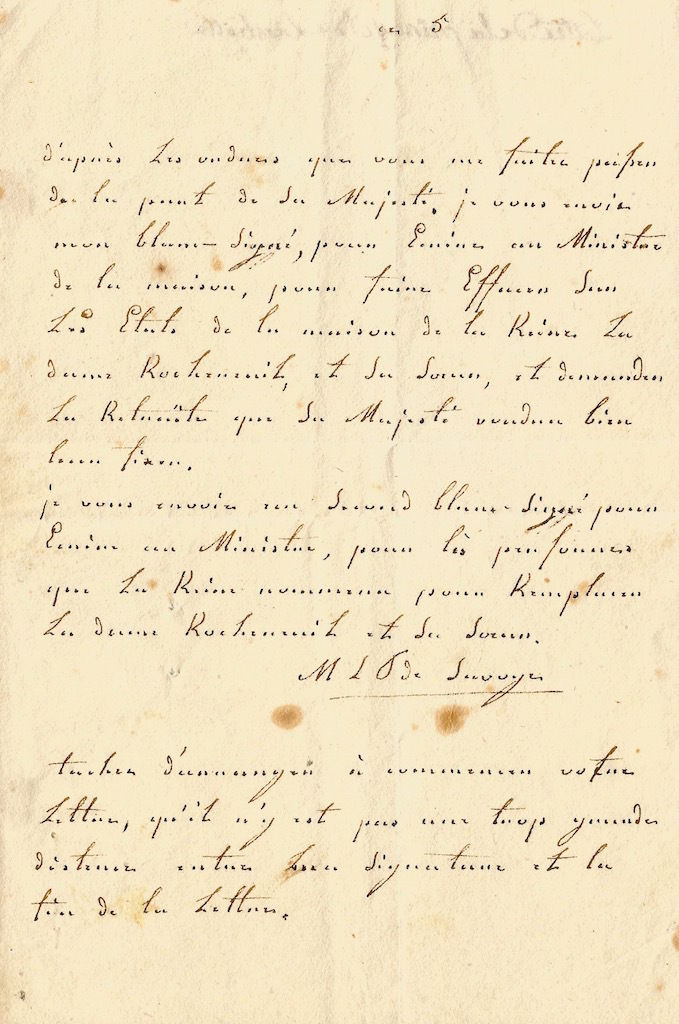 ce 5
d'après Les ordres que vous me faitte passer
de la part de Sa Majesté, je vous envoie
mon blanc-Signé, pour Ecrire au Ministre
de la maison, pour faire Effacer Sur
Les Etats de la maison de la Reine La
dame Rochereuil, et Sa Soeur, et demander
La Retraitte que Sa Majesté voudra bien
leur fixer.
je vous envoie un Second blanc-Signé pour
Ecrire au Ministre, pour lés personnes
que La Reine nommera pour Remplacer
La dame Rochereuil et Sa Soeur.
M L T de Savoye
tachez d'arranger à commencer votre
Lettre, qu'il n'y est pas une trop grande
distence entre signature et la
fin de la Lettre.